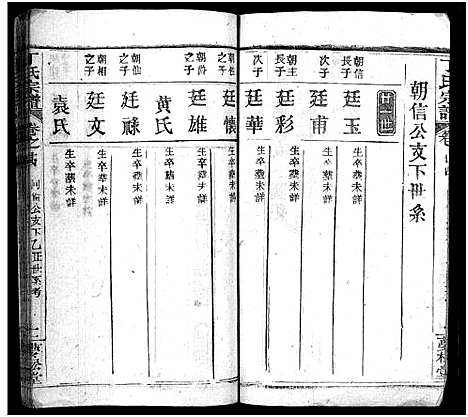 丁氏宗譜
朝信公支下世系
廿世
朝信長子
廷玉
生卒葬未詳
次子
廷甫
生卒葬未詳
朝主長子
廷彩
生卒葬未詳
次子
廷華
生卒葬未詳
朝 之子
廷懷
生卒葬未詳
廷雄
生卒葬未詳
黄氏
朝仙之子
廷祿
生卒葬未詳
朝相之子
廷文
生卒葬未詳
袁氏
丁氏宗譜
卷之
公支下 世系考